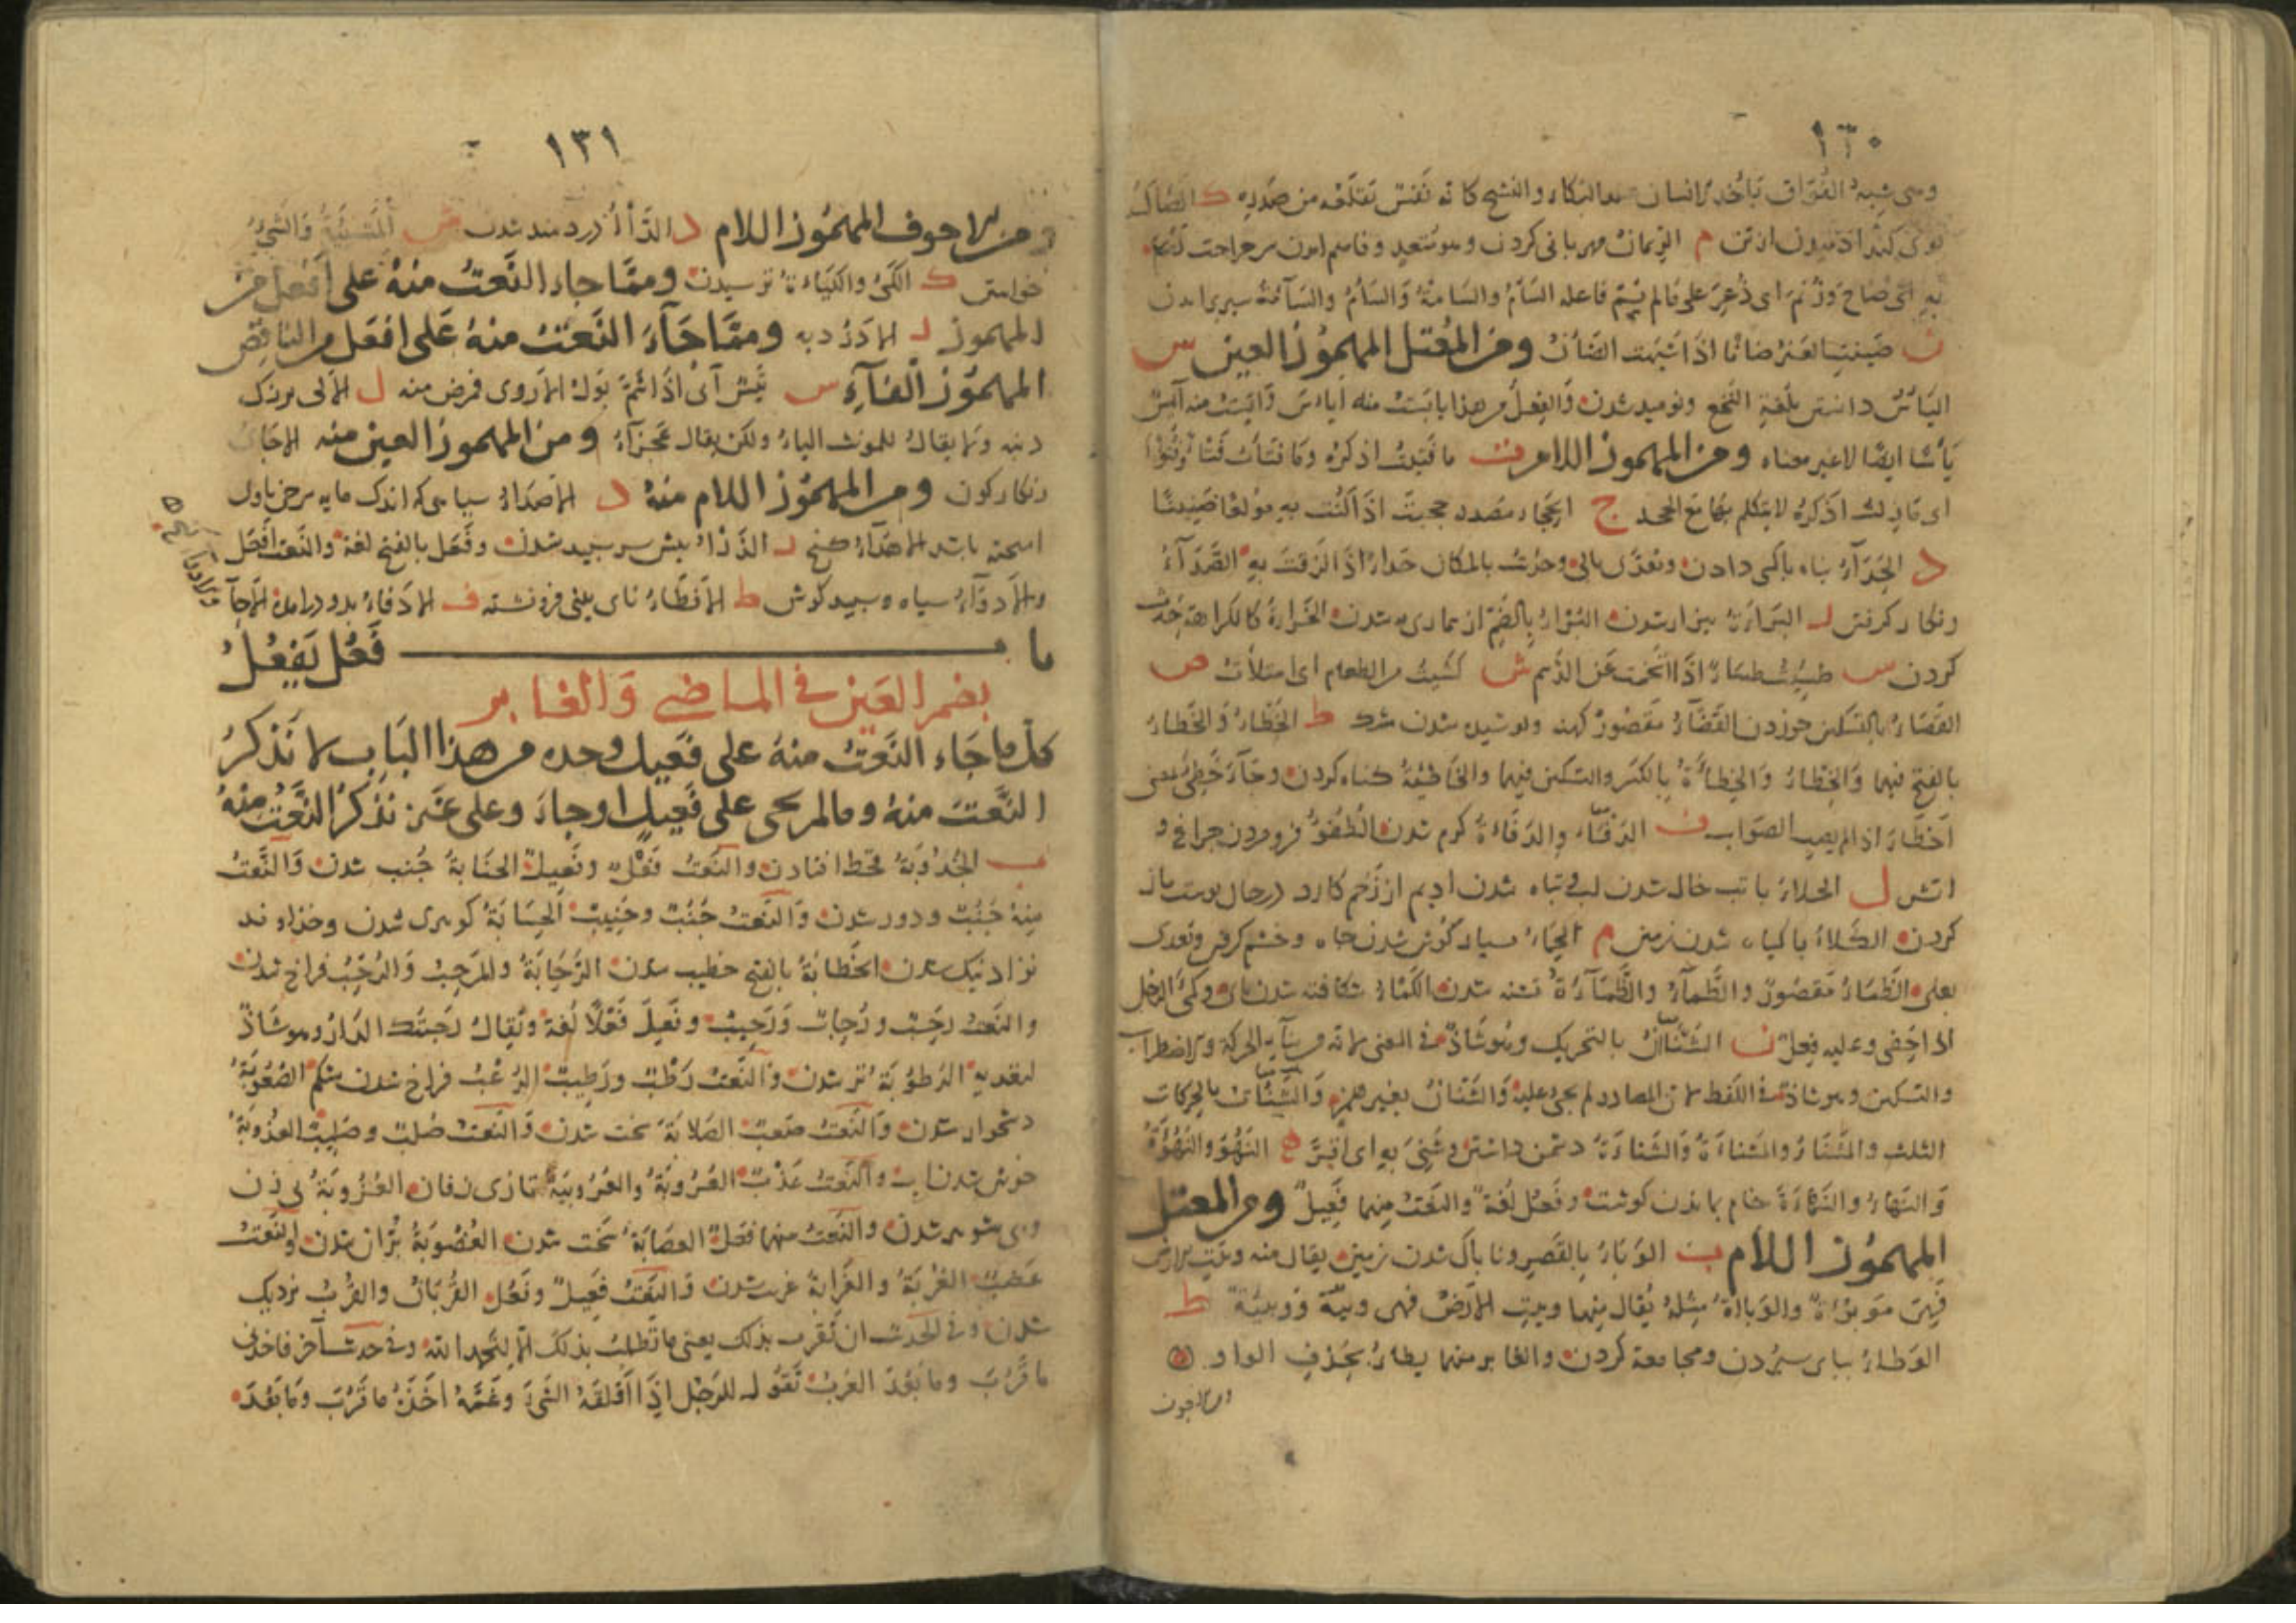 ١٣٠
وهى شبه الفواق يأخذ الانسان عند البكاء والنشج كانه نفس يقلعه من صدره ك الصأك
بوى كند ادميدن از تن م الرئمان مهربانى كردن وهو متعد وفاهم امدن سر جراحت زئم
به اى صاح وزئم اى ذعر على ما لم يسم فاعله السأم والسامة والسأم والسآمة سير برامدن
ن ضئنت العنز ضأنا اذا اشبهت الضأن ومن المعتل المهموز العين س
اليأس دانستن بلغة النخع ونوميد شدن والفعل من هذا باثبت منه اياس وايست منه آيس
يأسا ايضا لا غير معناه ومن المهموز اللام ت ما فتئت اذكره وما فتأت فتأ وفتوءا
اى ما زلت اذكره لا يتكلم بها مع الجحد ج الحجاء مصدر حجئت اذا كنت به مولعا ضنينا
د الحدآء پناه باكسى دادن وتعدى بالى وحدئت بالمكان حدأ اذا لزقت به الصدآء
زنكار كرفتن ر البراءة بيزار شدن البراء بالضم از بيمارى به شدن الخراءة كالكراهة حدث
كردن س طسئت طسأ اذا اتخمت عن الدسم ش كشئت من الطعام اى امتلأت ص
القضاء بالتسكين خوردن القضآء مقصور كهنه وپوشيده شدن مشك ط الخطاء والخطاء
بالفتح فيهما والخطاء والخطاءة بالكسر والتسكين فيهما والخاطئة كناه كردن وجآء خطئ بمعنى
اخطاء اذا لم يصب الصواب ف الدفآء والدفاءة كرم شدن الطفوء فرومردن چراغ و
اتش ل الحلاء باتب خال شدن لب وتباه شدن اديم از زخم كارد در حال پوست باز
كردن الكلاء با كياه شدن زمين م الحماء سياه كون شدن چاه وخشم كرفتن وتعدى
بعلى الظماء مقصور والظمآء والظمآءة تشنه شدن الكماء شكافته شدن پاى وكمئ الرجل
اذا حفى وعليه فعل ن الشنآن بالتحريك وهو شاذ فى المعنى لانه من بنآء الحركة والاضطراب
والتسكين وهو شاذ فى اللفظ لان المصادر لم تجئ عليه والشنان بغير همز والشنآن بالحركات
الثلث والمشناء والمشناءة والشناءة دشمن داشتن وشنئ به اى اقر ه النهوء والنهوءة
والنهاء والنهاءة خام بماندن كوشت وفعل لغة والنعت منهما فعيل ومن المعتل
المهموز اللام ب الوباء بالقصر وناباك شدن زمين يقال منه وبئت الارض
فهى موبوءة والوباءة مثله يقال منهما وبئت الارض فهى وبئة ووبيئة ط
الوطاء بپاى سپردن ومجامعة كردن والغابر منهما يطاء بحذف الواو
ومن الاجوف
١٣١
ومن الاجوف المهموز اللام د الدآء دردمند شدن ش المشيئة والشئ
خواستن ك الكئ والكياءة ترسيدن ومما جاء النعت منه على افعل من
المهموز ر الادر دبه ومما جآء النعت منه على افعل من الناقص
المهموز الفآء س تيس آبى اذا اشتم بول الاروى فمرض منه ل الالى بزرك
دنبه ولا يقال للمونث الياء ولكن يقال عجزآء ومن المهموز العين منه الاجاى
زنكار كون ومن المهموز اللام منه د الاصداء سياهى كه اندك مايه سرخى باول
اميخته باشد الاهدآء كنج ر الذراء پيش سر سپيد شدن وفعل بالفتح لغة والنعت افعل
والادرآء سياه وسپيد كوش ط الافطاء ناى بينى فرونشسته ف الادفاء بدو درامده الاجآ
ما فعل يفعل
بضم العين فى الماضى والغابر
كل ما جاء النعت منه على فعيل وحده من هذا الباب لا نذكر
النعت منه وما لم يجئ على فعيل او جاء وعلى غيره نذكر النعت منه
ب الجدوبة قحط افتادن والنعت فعل وفعيل الجنابة جنب شدن والنعت
منه جنب ودور شدن والنعت جنب وجنيب الحسابة كوهرى شدن وخداوند
نژاد نيك شدن الخطابة بالفتح خطيب شدن الرحابة والرحب والرحب فراخ شدن
والنعت رحب ورحاب ورحيب وفعيل فعلا لغة ويقال رحبتك الدار وهو شاذ
لتعديه الرطوبة تر شدن والنعت رطب ورطيب الرغب فراخ شدن شكم الصعوبة
دشخوار شدن والنعت صعب الصلابة سخت شدن والنعت صلب وصليب العذوبة
خوش شدن اب والنعت عذب العروبة والعروبية تازى زفان العزوبة بى زن
وبى شوهر شدن والنعت منهما فعل العصابة سخت شدن العضوبة بران شدن والنعت
عضب الغربة والغرابة غريب شدن والنعت فعيل وفعل القربان والقرب نزديك
شدن وفى الحديث ان نقرب بذلك يعنى ما نطلب بذلك الا لنحمد الله وفى حديث آخر فاخذنى
ما قرب وما بعد العرب تقول للرجل اذا اقلقه الشئ وغمه اخذه ما قرب وما بعد